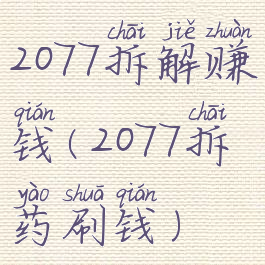 chāi jiě zhuàn
2077拆解赚
qián chāi
钱(2077拆
yào shuā qián
药刷钱)